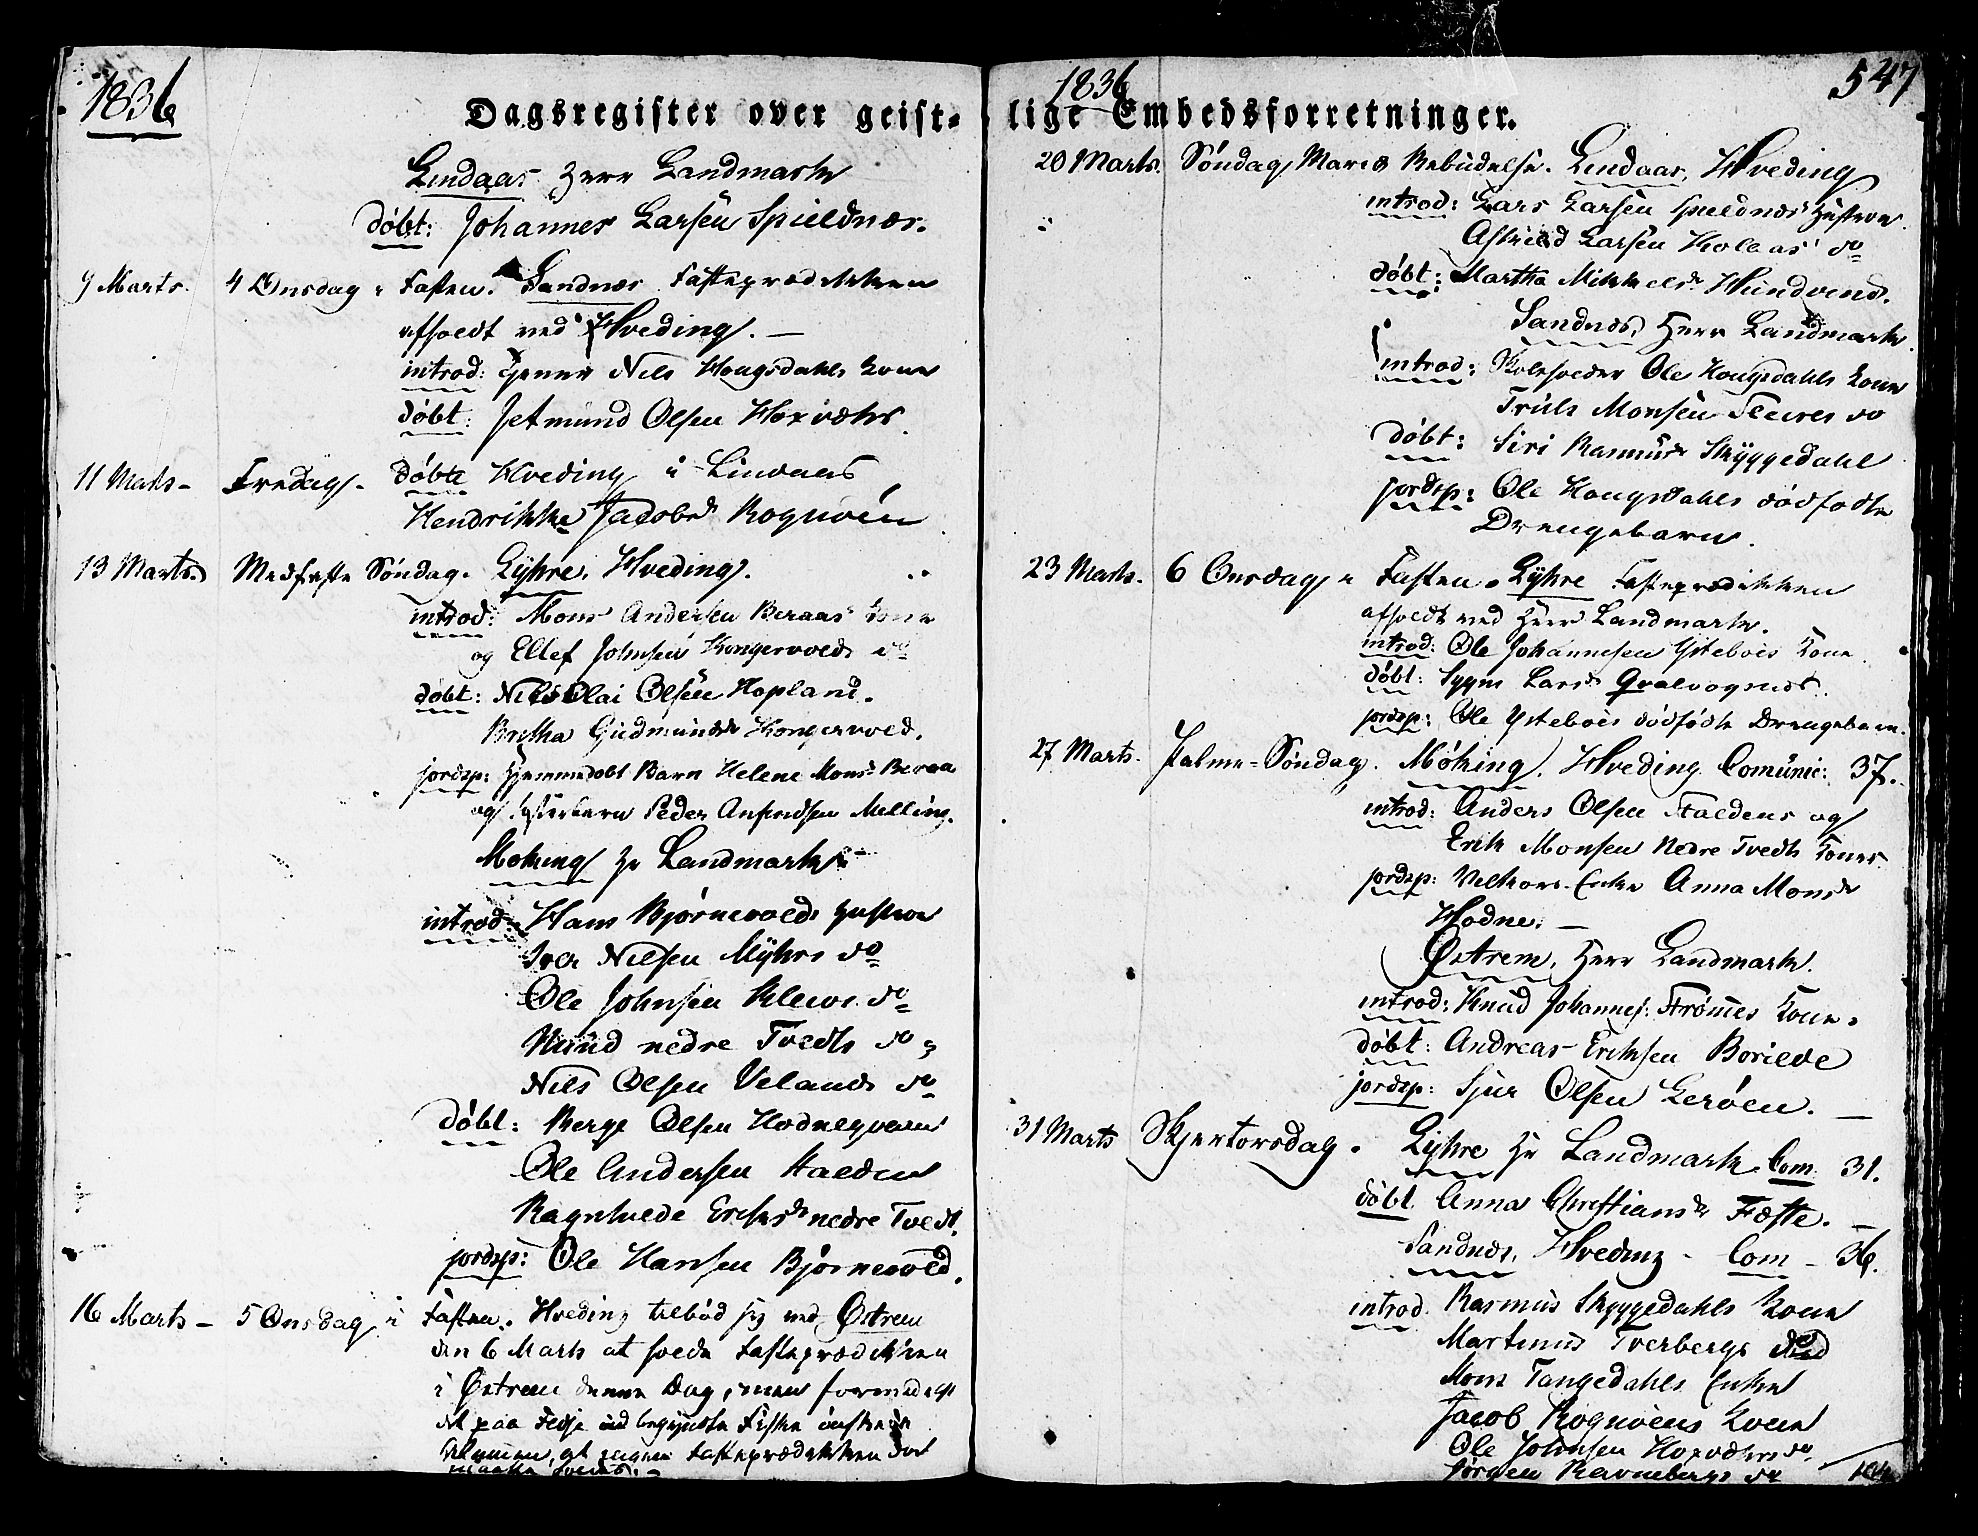 1836
Dagsregister over geist-
Lindaas Herr Landmark
døbt: Johannes Larsen Spieldnæs.
9 Marts. 4 Onsdag i Fasten. Sandnæs Fasteprædikken
afholdt ved Hveding. —
introd: Nils Hougsdahls Kone
døbt: Jetmund Olsen
11 Marts – Fredag. døbte Hveding i Lindaas
Hendrikke Jacobsdr Rognøen
13 Marts. Midfaste Søndag. Lyhre. Hveding.
introd: Mons Andersen Beraas Kone
og Ellef Johnsen Kongsvolds do
døbt: Nils Olai Olsen Hopland.
Britha Gudmundsdr Kongervold.
jordsp: Hjemmedøbt Barn Helene Monsdr Beraas
og Peder Anfindsen Melling.
Møking Hr Landmark
introd: Hans Bjørnevolds Hustroe
Iver Nilsen Myhrs do
Ole Johnsen Kleivs do
Knud nedre Tvedts do
Nils Olsen Velands do
døbt: Berge Olsen Hodneqvam
Ole Andersen Halden
Ragnhilde Eriksdr nedre Tvedt.
jordsp: Ole Hansen Bjørnevold.
16 Marts – 5 Onsdag i Fasten. Hveding tilbød sig ved Østrem
den 6 Marts at holde Fasteprædikken
i Østrem denne Dag, men formedelst
det paa Fedje begyndte Fiske ønskede
Almuen, at ingen Fasteprædikken der
maatte holdes. –
1836
547
lige Embedsforretninger.
20 Marts. Søndag Mariæ Bebudelse. Lindaas, Hveding
introd: Lars Larsen Spieldnæs Hustroe.
Larsen Kolaas do
døbt: Martha Mikkelsdr Hundvind.
Sandnæs, Herr Landmark.
introd: Skoleholder Ole Hougsdahls Kone
Truls Monsen do
døbt: Siri Rasmusdr Skyggedahl
jordsp: Ole Hougsdahls dødfødte
Drengebarn.
23 Marts. 6 Onsdag i Fasten. Lyhre Fasteprædikken
afholdt ved Herr Landmark.
introd: Ole Johannesen Ystebøes Kone.
døbt: Larsdr Qvalvognæs.
jordsp: Ole Ystebøes dødfødte Drengebarn.
27 Marts. Palme-Søndag. Møking. Hveding Comunic: 37.
introd: Anders Olsen Haldens og
Erik Monsen Nedre Tvedts Koner
jordsp: Enke Anna Monsdr
Hodne. —
Østrem, Herr Landmark.
introd: Knud Johannes: Strømes Kone.
døbt: Andreas Eriksen Borilde
jordsp: Sjur Olsen Lerøen. —
31 Marts Skjertorsdag. Lyhre Hr Landmark Com: 31.
døbt Anna Christiansdr Fæste. —
Sandnæs, Hveding – Com – 36.
introd. Rasmus Skyggedahls Kone
Martinus Tverbergs do
Mons Tangedahls Enke
Jacob Rognøens Kone
Ole Johnsen do.
Jørgen Ravnebergs do